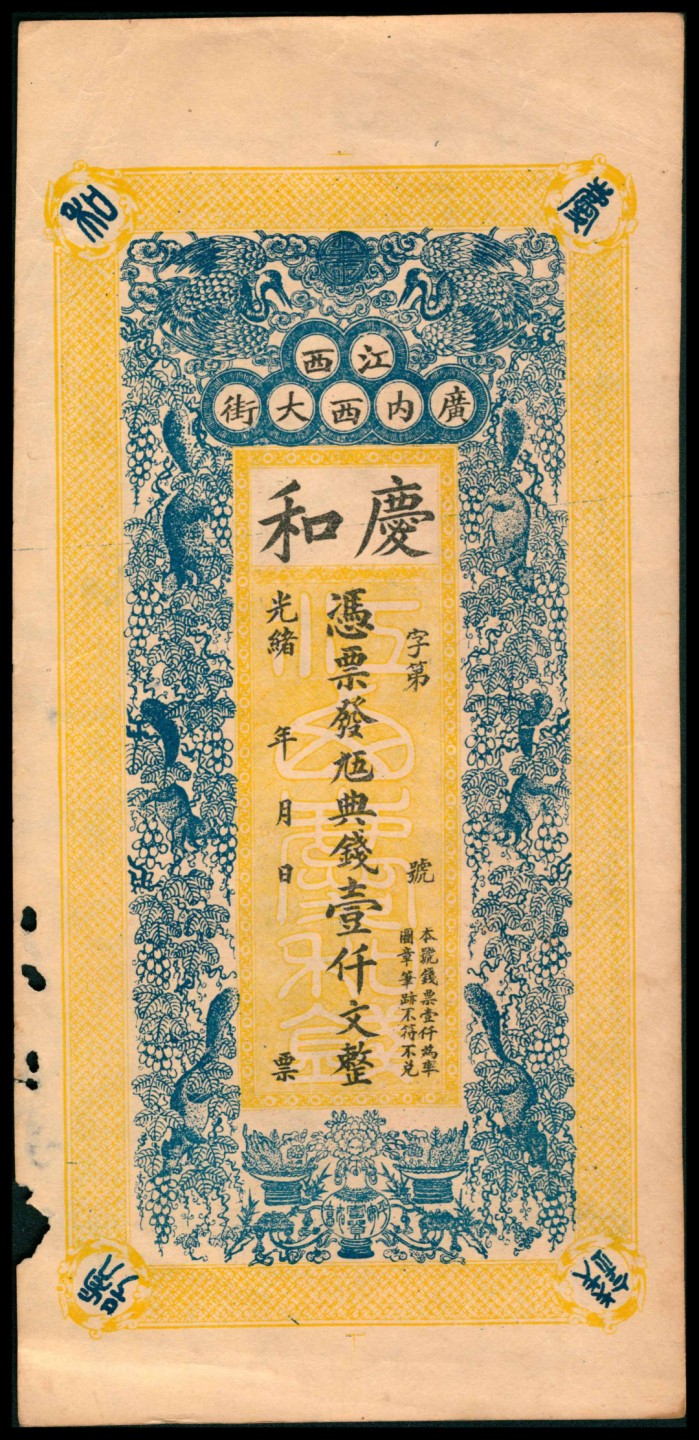 慶
和
江西
廣內西大街
慶和
字第 號
本號錢票壹仟為率
圖章筆跡不符不兌
憑票發九五典錢壹仟文整
光緒 年 月 日 票